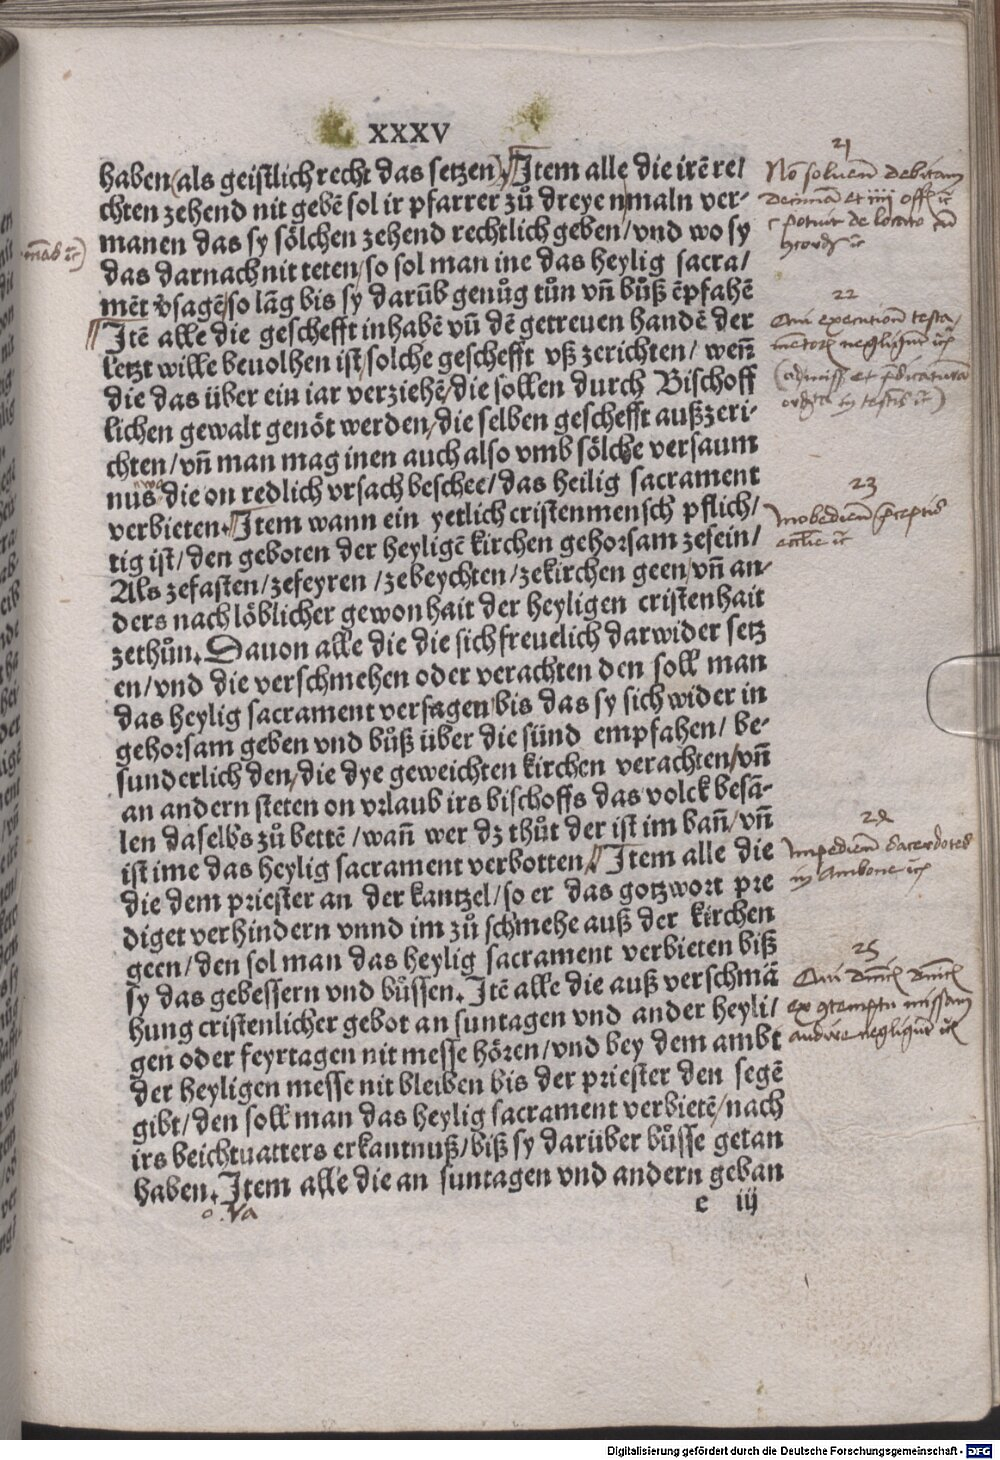 XXXV
haben (als geistlich recht das setzen). Item alle die irē re/
chten zehend nit gebē sol ir pfarrer zů dreyen maln ver-
manen das sy sölchen zehend rechtlich geben/ vnd wo sy
das darnach nit teten/ so sol man ine das heylig sacra/
mēt v̄sagē/ so lāg bis sy darūb genůg tůn vn̄ bůß ēpfahē
Itē alle die geschefft inhabē vn̄ dē getreuen handē der
letzt wille beuolhen ist/ solche geschefft vß zerichten/ wen̄
die das über ein iar verziehē/ die sollen durch Bischoff
lichen gewalt genöt werden/ die selben geschefft außzeri-
chten/ vn̄ man mag inen auch also vmb sölche versaum
nus die on redlich vrsach beschee/ das heilig sacrament
verbieten. Item wann ein yetlich cristenmensch pflich/
tig ist/ den geboten der heyligē kirchen gehorsam zesein/
Als zefasten/ zefeyren/ zebeychten/ zekirchen geen/ vn̄ an-
ders nach löblicher gewonhait der heyligen cristenhait
zethůn. Dauon alle die die sich freuelich darwider setz
en/ vnd die verschmehen oder verachten den soll man
das heylig sacrament versagen bis das sy sich wider in
gehorsam geben vnd bůß über die sünd empfahen/ be-
sunderlich den/ die dye geweichten kirchen verachten/ vn̄
an andern steten on vrlaub irs bischoffs das volck besā-
len daselbs zů bettē/ wan̄ wer dz thůt der ist im ban̄/ vn̄
ist ime das heylig sacrament verbotten. Item alle die
die dem priester an der kantzel/ so er das gotzwort pre
diget verhindern vnnd im zů schmehe auß der kirchen
geen/ den sol man das heylig sacrament verbieten biß
sy das gebessern vnd bůssen. Itē alle die auß verschmä
hung cristenlicher gebot an suntagen vnd ander heyli/
gen oder feyrtagen nit messe hören/ vnd bey dem ambt
der heyligen messe nit bleiben bis der priester den segē
gibt/ den soll man das heylig sacrament verbietē/ nach
irs beichtuatters erkantnuß/ biß sy darüber bůsse getan
haben. Item alle die an suntagen vnd andern geban
e iij
21
debitam
22
23
24
Impediend sacerdotes
in Ambone
25
missam
Digitalisierung gefördert durch die Deutsche Forschungsgemeinschaft - DFG